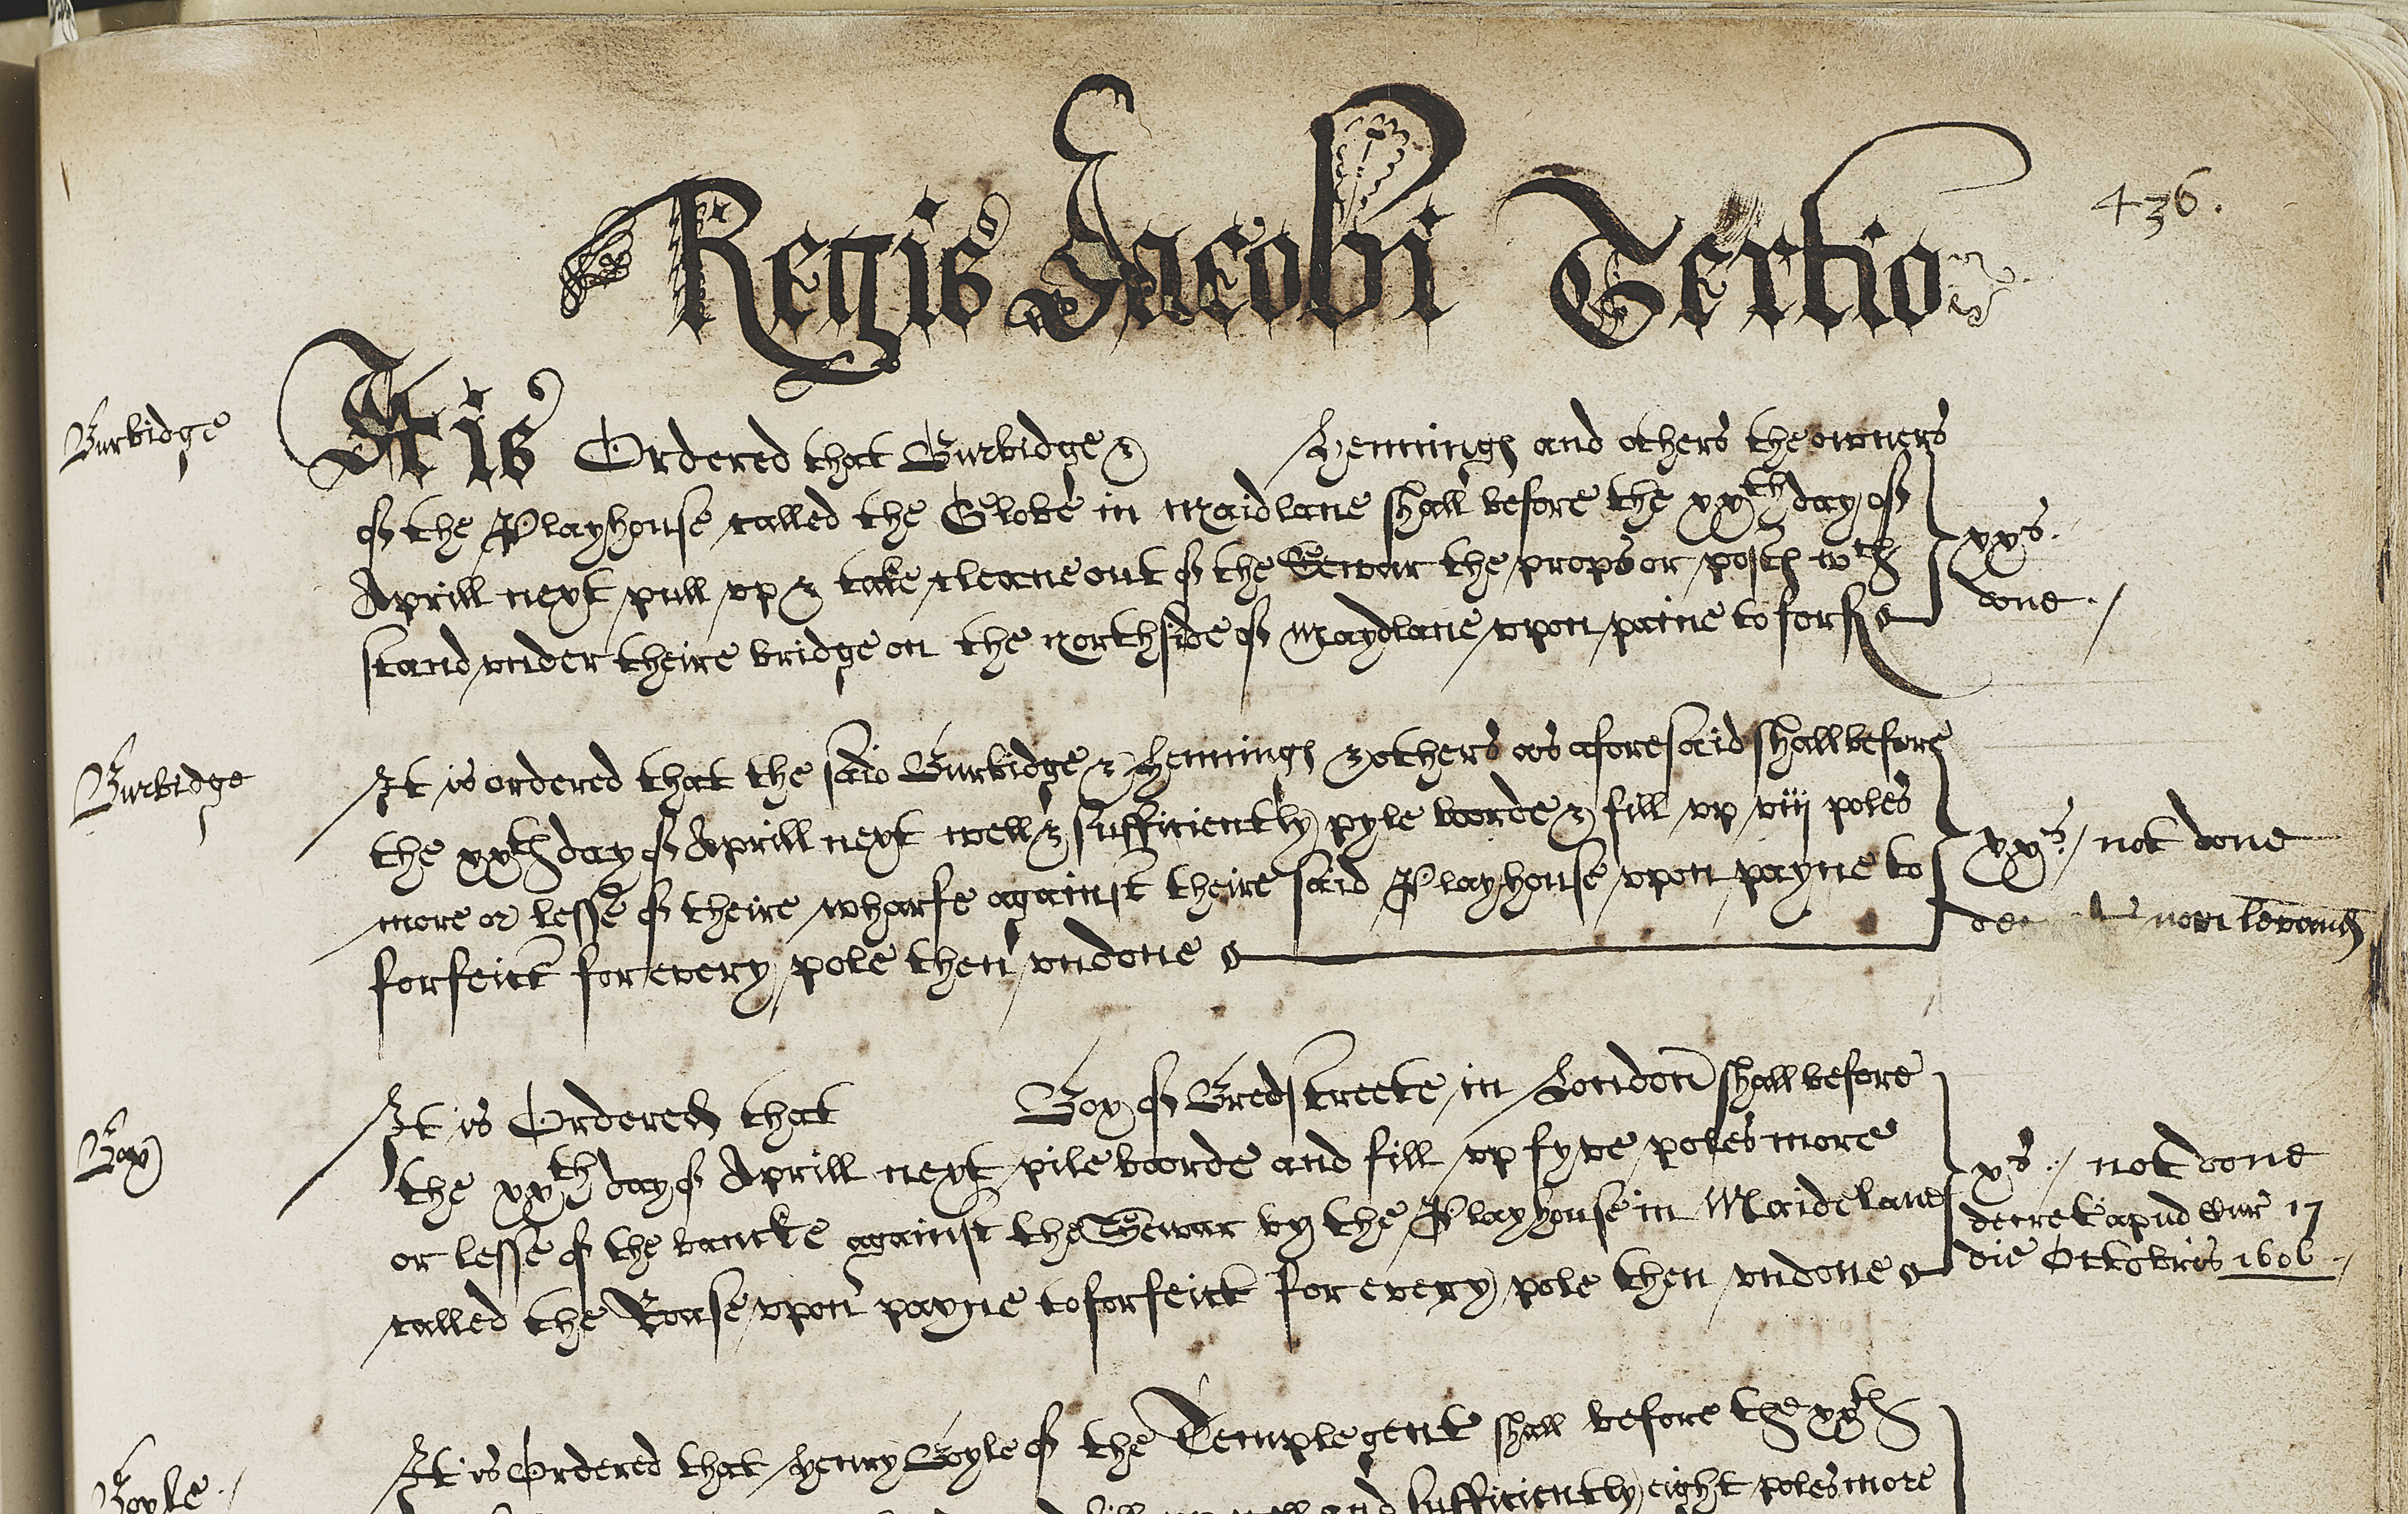 436.
Regis Jacobi Tertio
Burbidge
It is Ordered that Burbidge & Hemminges and others the owners
of the Playhouse called the Globe in Maidlane shall before the xxth day of
Aprill next pull vp & take cleane out of the Sewar the props or postes wch
stand vnder theire bridge on the northside of Maydlane vpon paine to forf
xxs.
done ./
Burbidge
It is ordered that the said Burbidge & Hemminges & others as aforesaid shall before
the xxth day of Aprill next well & sufficiently pyle boorde & fill vp viij poles
more or lesse of theire wharfe against theire said Playhouse vpon payne to
forfeict for every pole then vndone
xxs. / not done
non levand
Boy
It is Ordered that Boy of Bredstreete in London shall before
the xxth day of Aprill next pile boorde and fill vp fyve poles more
or lesse of the bancke against the Sewar by the Playhouse in Maidelane
called the Rouse vpon payne to forfeict for every pole then vndone
xs. / not done
decret apud Cur 17
die Octobris 1606 ./
Boyle ./
It is Ordered that Henry Boyle of the Temple gent shall before the xxth
fill vp well and sufficiently eight poles more